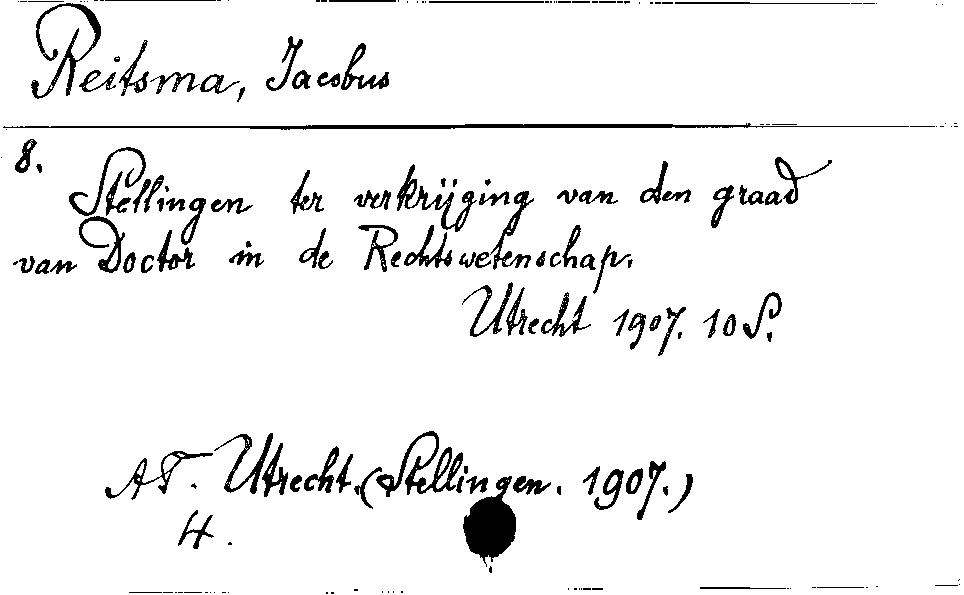 Reitsma, Jacobus
8.
Stellingen ter verkrijging van den graad
van Doctor in de Rechtswetenschap.
Utrecht 1907. 10 S.
AT. Utrecht. (Stellingen. 1907.)
4.